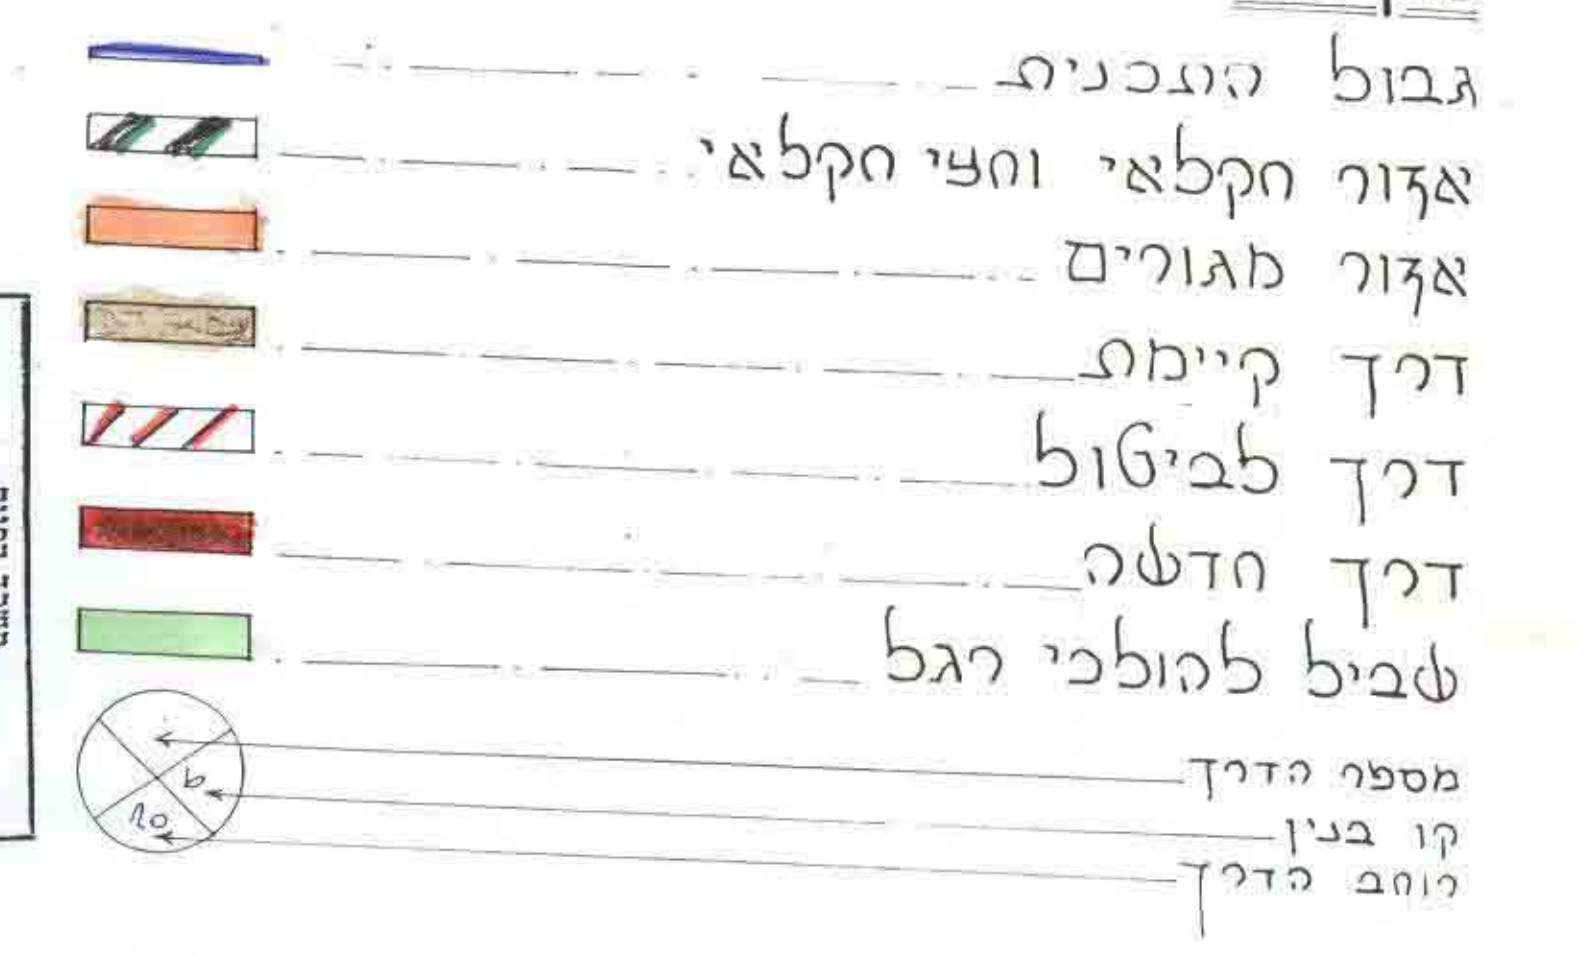 גבול התכנית
אזור חקלאי וחצי חקלאי
אזור מגורים
דרך קיימת
דרך לביטול
דרך חדשה
שביל להולכי רגל
מספר הדרך
קו בנין
רוחב הדרך